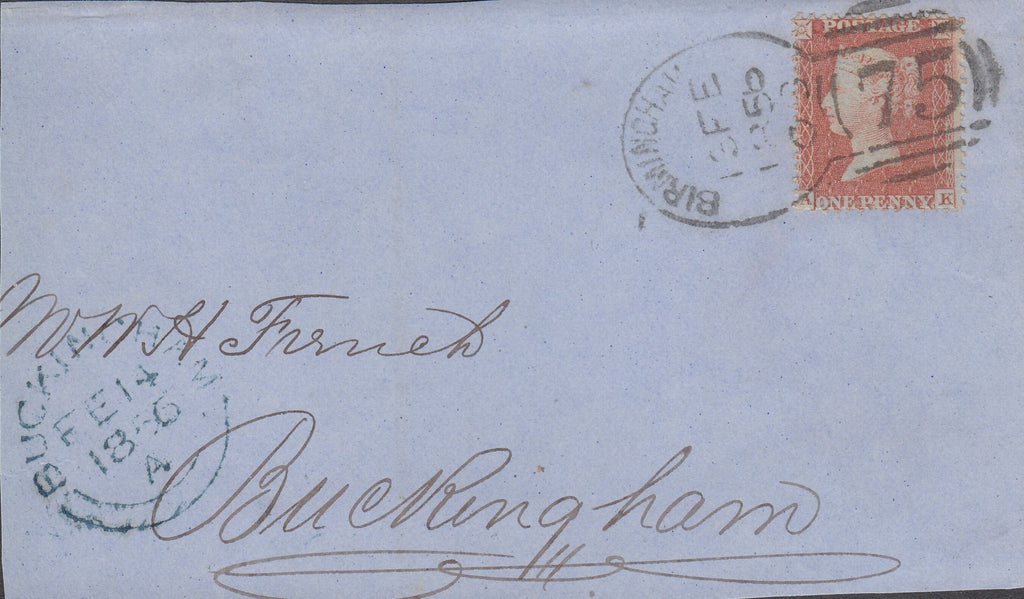 POSTAGE
BIRMINGHAM
13 FE
1856
75
A ONE PENNY K
Mr W H French
BUCKINGHAM
FE 14
1856
A
Buckingham